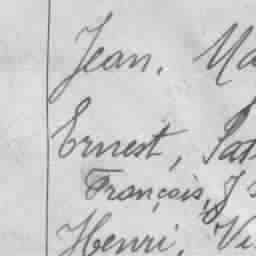 Jean, Ma
Ernest, Pat
François, J
Henri, Vi